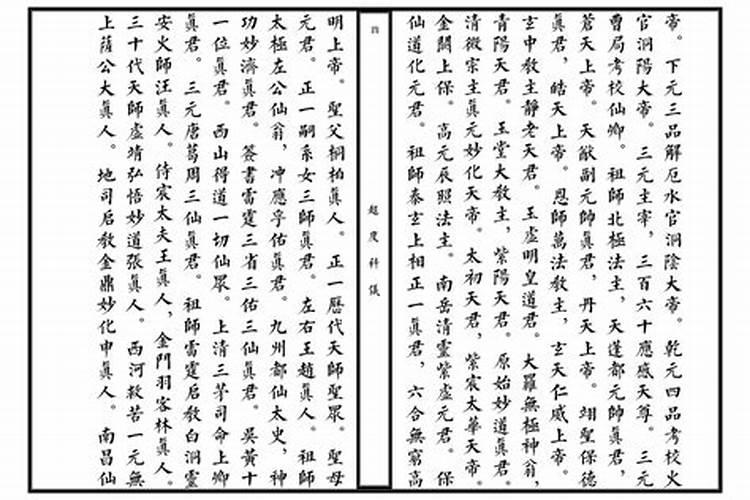 帝。下元三品解厄水官洞陰大帝。乾元四品考校火
官洞陽大帝。三元主宰,三百六十應感天尊。三元
曹局考校仙卿。祖師北極法主,天蓬都元帥眞君,
蒼天上帝。天猷副元帥眞君,丹天上帝。翊聖保德
眞君,皓天上帝。恩師萬法教主,玄天仁威上帝。
玄中教主靜老天君。玉虛明皇道君。大羅無極神翁,
青陽天君。玉堂大教主,紫陽天君。原始妙道眞君。
清微宗主眞元妙化天帝。太初天君,紫宸太華天帝。
金闕上保。高元辰照法主。南岳清靈紫虛元君。保
仙道化元君。祖師泰玄上相正一眞君,六合無窮高
超度科儀
四
明上帝。聖父桐柏眞人。正一歷代天師聖眾。聖母
元君。正一嗣系女三師眞君。左右王趙眞人。祖師
太極左公仙翁,冲應孚佑眞君。九州都仙太史,神
功妙濟眞君。簽書雷霆三省三佑三仙眞君。吳黃十
一位眞君。西山得道一切仙眾。上清三茅司命上卿
眞君。三元唐葛周三仙眞君。祖師雷霆启教白洞靈
安火師汪眞人。侍宸太夫王眞人,金門羽客林眞人。
三十代天師虛靖弘悟妙道張眞人。西河救苦一元無
上薩公大眞人。地司启教金鼎妙化申眞人。南昌仙